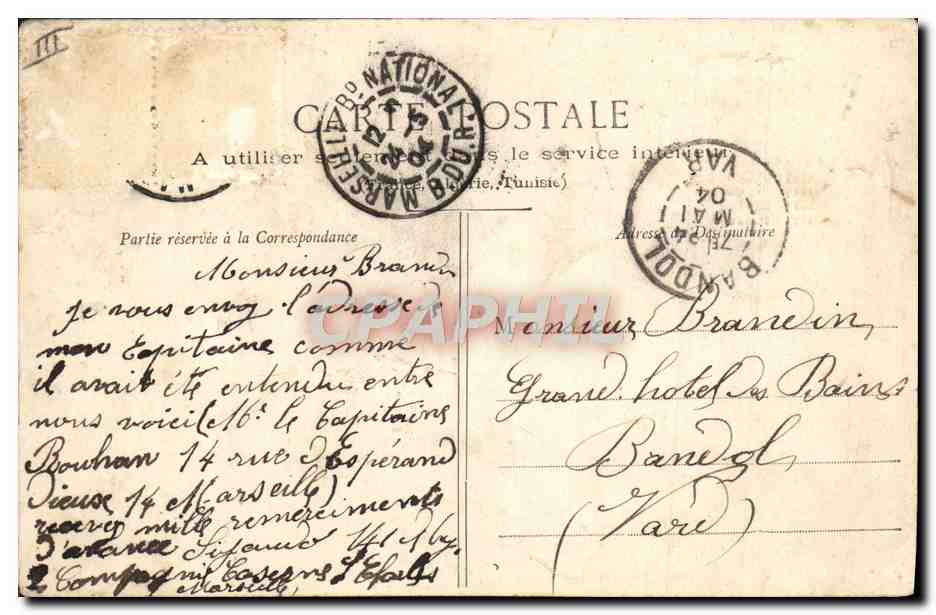 III
MARSEILLE Bd NATIONAL
12
24 -5
04
B. DU R.
CARTE POSTALE
A utiliser seulement dans le service intérieur
(France, Algérie, Tunisie)
BANDOL
7E 24
MAI
04
VAR
Partie réservée à la Correspondance
Adresse du Destinataire
Monsieur Brandin
je vous envoy l'adresse de
mon Capitaine comme
il avait été entendu entre
nous voici (Mr le Capitaine
Bouhan 14 rue d'Espérand
dieuse 14 Marseille)
recevez mille remerciments
d'avance 141
2 Compagnie Caserne
Marseille
CPAPHIL
Monsieur Brandin
Grand hotel des Bains
Bandol
(Vard)